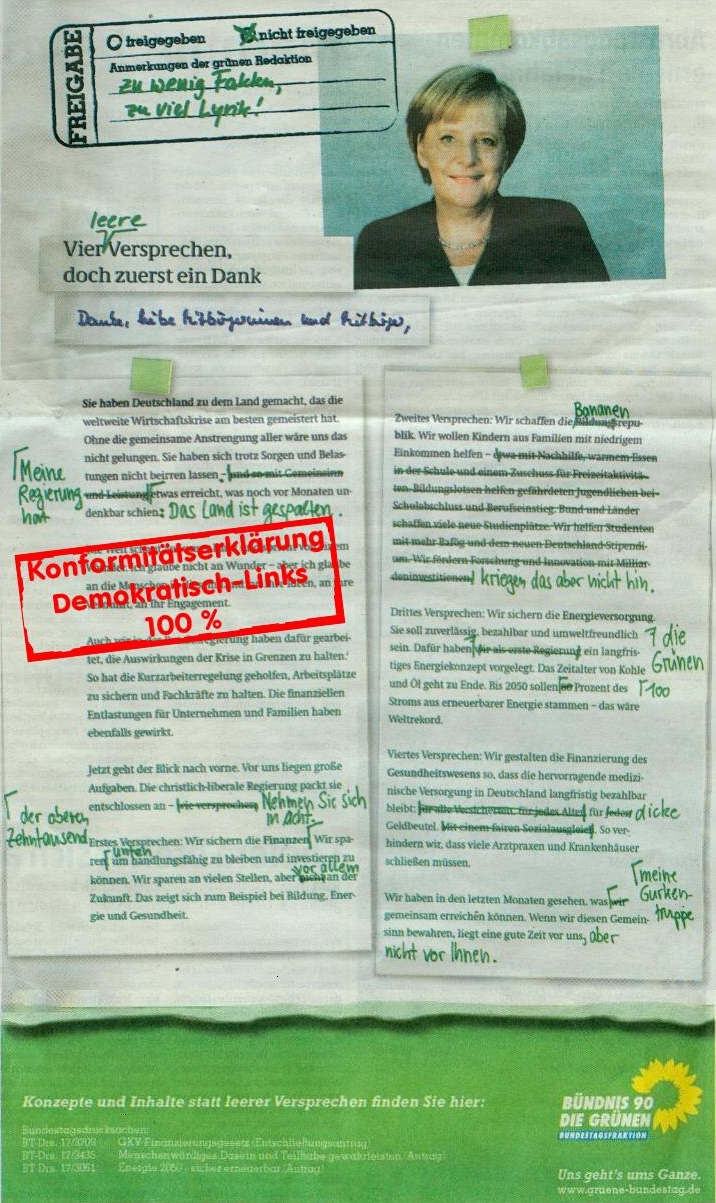 FREIGABE
freigegeben nicht freigegeben
Anmerkungen der grünen Redaktion
zu wenig Fakten,
zu viel Lyrik!
leere
Vier Versprechen,
doch zuerst ein Dank
Danke, liebe Mitbürgerinnen und Mitbürger,
Sie haben Deutschland zu dem Land gemacht, das die
weltweite Wirtschaftskrise am besten gemeistert hat.
Ohne die gemeinsame Anstrengung aller wäre uns das
nicht gelungen. Sie haben sich trotz Sorgen und Belas-
tungen nicht beirren lassen – und so mit Gemeinsinn
und Leistung etwas erreicht, was noch vor Monaten un-
denkbar schien: Das Land ist gespalten.
Meine
Regierung
hat
Konformitätserklärung
Demokratisch-Links
100 %
glaube nicht an Wunder – aber ich glaube
an die Menschen
an ihr Engagement.
Auch wir in der Bundesregierung haben dafür gearbei-
tet, die Auswirkungen der Krise in Grenzen zu halten.
So hat die Kurzarbeiterregelung geholfen, Arbeitsplätze
zu sichern und Fachkräfte zu halten. Die finanziellen
Entlastungen für Unternehmen und Familien haben
ebenfalls gewirkt.
Jetzt geht der Blick nach vorne. Vor uns liegen große
Aufgaben. Die christlich-liberale Regierung packt sie
entschlossen an – wie versprochen Nehmen Sie sich
in Acht.
der oberen
Zehntausend
Erstes Versprechen: Wir sichern die Finanzen. Wir spa-
unten
ren, um handlungsfähig zu bleiben und investieren zu
können. Wir sparen an vielen Stellen, aber nicht an der
vor allem
Zukunft. Das zeigt sich zum Beispiel bei Bildung, Ener-
gie und Gesundheit.
Bananen
Zweites Versprechen: Wir schaffen die Bildungsrepu-
blik. Wir wollen Kindern aus Familien mit niedrigem
Einkommen helfen – etwa mit Nachhilfe, warmem Essen
in der Schule und einem Zuschuss für Freizeitaktivitä-
ten. Bildungslotsen helfen gefährdeten Jugendlichen bei
Schulabschluss und Berufseinstieg. Bund und Länder
schaffen viele neue Studienplätze. Wir helfen Studenten
mit mehr Bafög und dem neuen Deutschland-Stipendi-
um. Wir fördern Forschung und Innovation mit Milliar-
deninvestitionen. kriegen das aber nicht hin.
Drittes Versprechen: Wir sichern die Energieversorgung.
Sie soll zuverlässig, bezahlbar und umweltfreundlich
sein. Dafür haben wir als erste Regierung ein langfris-
die
Grünen
tiges Energiekonzept vorgelegt. Das Zeitalter von Kohle
und Öl geht zu Ende. Bis 2050 sollen 80 Prozent des
100
Stroms aus erneuerbarer Energie stammen – das wäre
Weltrekord.
Viertes Versprechen: Wir gestalten die Finanzierung des
Gesundheitswesens so, dass die hervorragende medizi-
nische Versorgung in Deutschland langfristig bezahlbar
bleibt: für alle Versicherten, für jedes Alter, für jeden dicke
Geldbeutel. Mit einem fairen Sozialausgleich. So ver-
hindern wir, dass viele Arztpraxen und Krankenhäuser
schließen müssen.
meine
Gurken-
truppe
Wir haben in den letzten Monaten gesehen, was wir
gemeinsam erreichen können. Wenn wir diesen Gemein-
sinn bewahren, liegt eine gute Zeit vor uns, aber
nicht vor Ihnen.
Konzepte und Inhalte statt leerer Versprechen finden Sie hier:
Bundestagsdrucksachen:
BT-Drs. 17/3709 GKV-Finanzierungsgesetz (Entschließungsantrag)
BT-Drs. 17/3435 Menschenwürdiges Dasein und Teilhabe gewährleisten (Antrag)
BT-Drs. 17/3061 Energie 2050 - sicher erneuerbar (Antrag)
BÜNDNIS 90
DIE GRÜNEN
BUNDESTAGSFRAKTION
Uns geht's ums Ganze.
www.gruene-bundestag.de